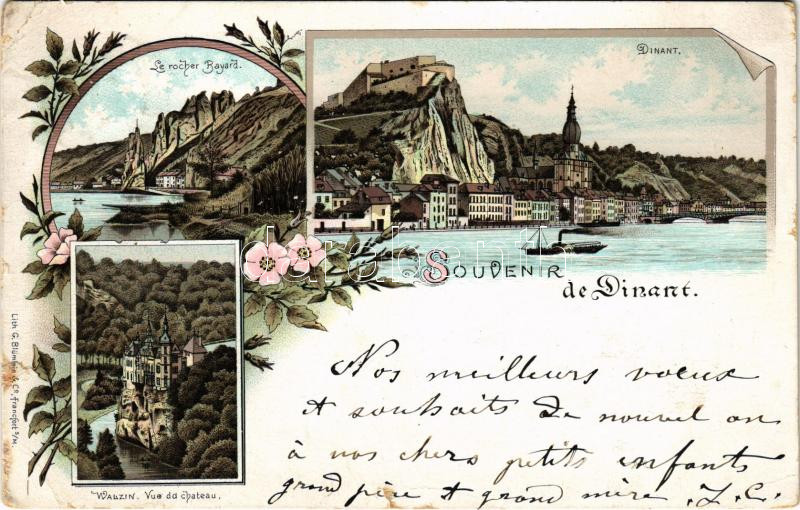 Le rocher Bayard.
DINANT.
SOUVENIR
de Dinant.
Nos meilleurs voeux
et souhaits de nouvel an
à vos chers petits enfants
grand père et grand mère. J. C.
WALZIN. Vue du chateau.
Lith G. Blümlein & Co. Francfort s/M.
darabanth